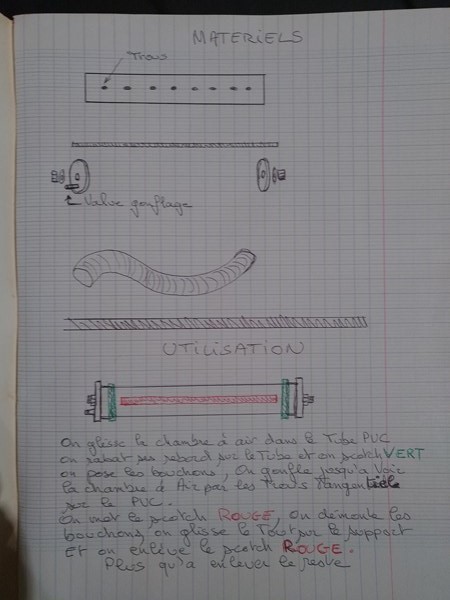 MATERIELS
Trous
Valve gonflage
UTILISATION
On glisse la chambre à air dans le Tube PVC
on rabat ses rebord sur le Tube et on scotch VERT
on pose les bouchons, On gonfle jusqu'a Voir
la chambre à Air par les Trous Tangentiele
sur le PVC.
On met le scotch ROUGE, On démonte les
bouchons, on glisse le Tout sur le support
et on enlève le scotch ROUGE.
Plus qu'a enlever le reste